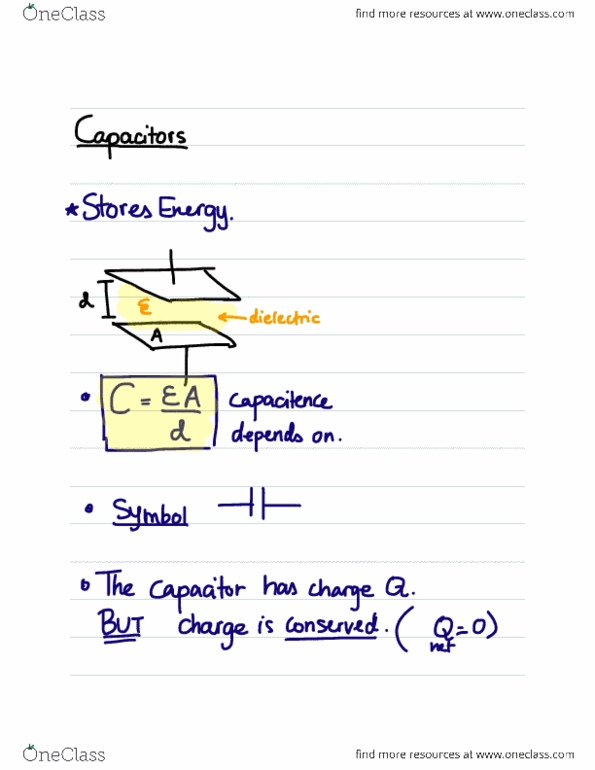 OneClass
find more resources at www.oneclass.com
Capacitors
* Stores Energy.
d
ε
dielectric
A
• C = εA / d capacitence
depends on.
• Symbol
• The capacitor has charge Q.
BUT charge is conserved. ( Qnet = 0)
OneClass
find more resources at www.oneclass.com